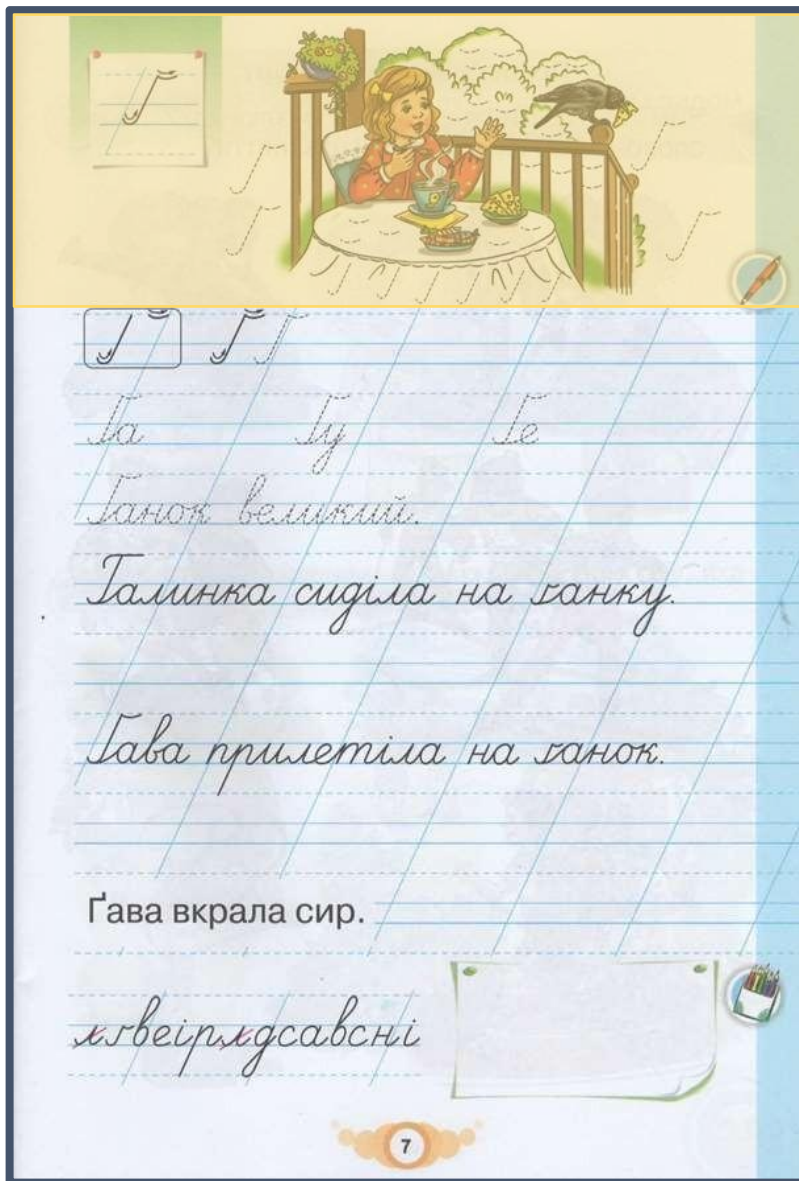 Ґ
Ґ Ґ Ґ
Ґа Ґу Ґе
Ґанок великий.
Галинка сиділа на ґанку.
Ґава прилетіла на ґанок.
Ґава вкрала сир.
7